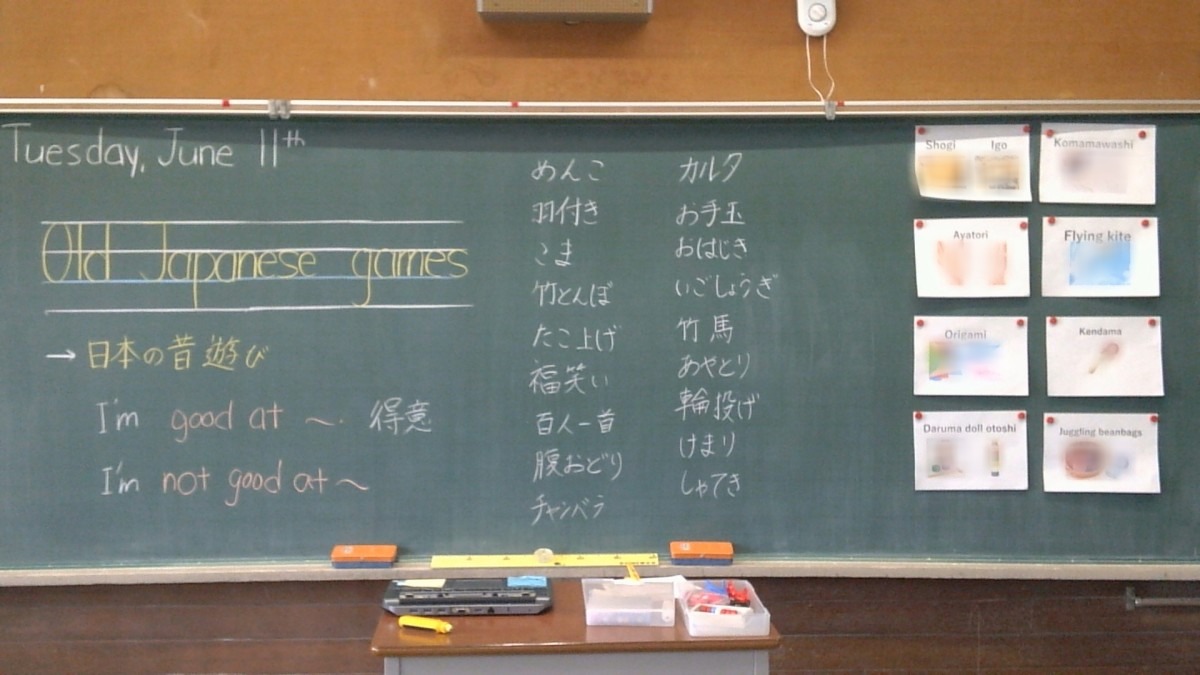 Tuesday, June 11th
Old Japanese games
→ 日本の昔遊び
I'm good at ～. 得意
I'm not good at ～
めんこ
羽付き
こま
竹とんぼ
たこ上げ
福笑い
百人一首
腹おどり
チャンバラ
カルタ
お手玉
おはじき
いごしょうぎ
竹馬
あやとり
輪投げ
けまり
しゃてき
Shogi Igo
Komamawashi
Ayatori
Flying kite
Origami
Kendama
Daruma doll otoshi
Juggling beanbags